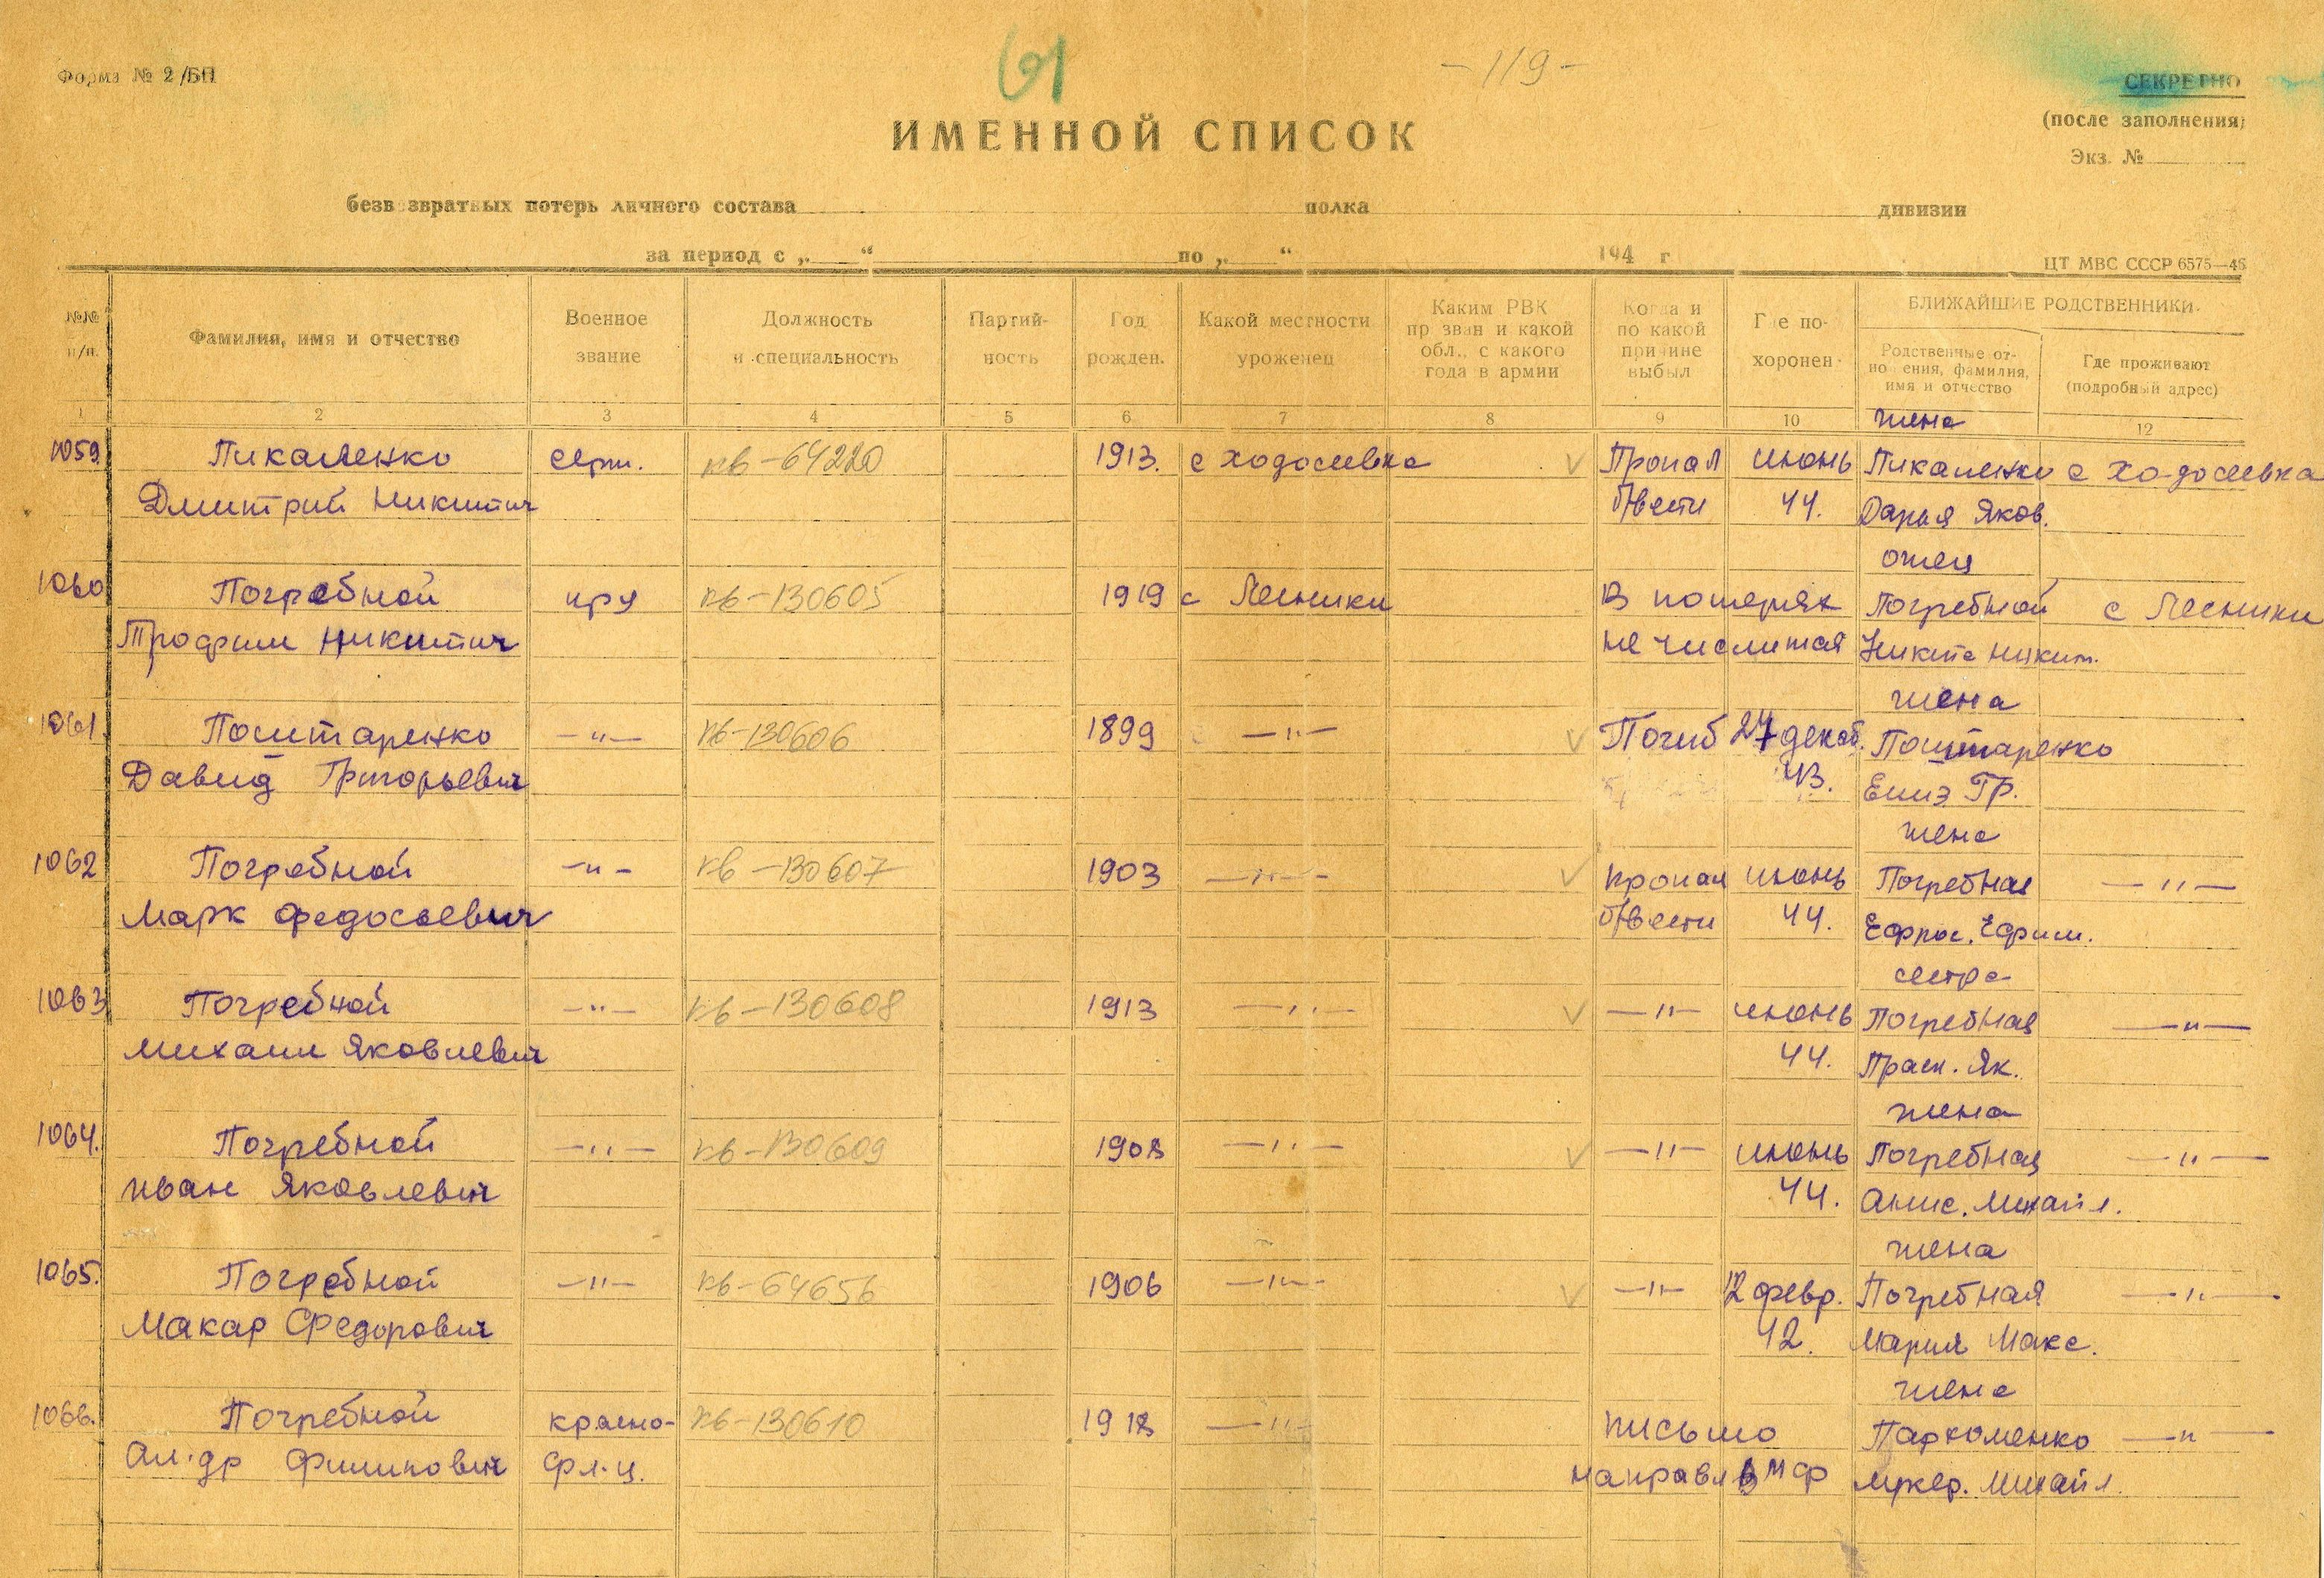 61
-119-
Форма № 2/БП
СЕКРЕТНО
(после заполнения)
Экз. №
ИМЕННОЙ СПИСОК
безвозвратных потерь личного состава полка дивизии
за период с „ “ по „ “ 194 г
ЦТ МВС СССР 6575—46
№№ п/п.
Фамилия, имя и отчество
Военное звание
Должность и специальность
Партийность
Год рожден.
Какой местности уроженец
Каким РВК призван и какой обл., с какого года в армии
Когда и по какой причине выбыл
Где похоронен
БЛИЖАЙШИЕ РОДСТВЕННИКИ
Родственные отношения, фамилия, имя и отчество
Где проживают (подробный адрес)
1 2 3 4 5 6 7 8 9 10 12
жена
1059 Пикаленко серж. кв-64220 1913. с Ходосеевка v Пропал июнь Пикаленко с Ходосеевка
Дмитрий Никитич б/вести 44. Дарья Яков.
отец
1060 Погребной кр-ц кв-130605 1919 с Лесники В потерях Погребной с Лесники
Трофим Никитич не числится Никита Никит.
жена
1061. Поштаренко —"— кв-130606 1899 —"— v Погиб 27 декаб. Поштаренко
Давид Григорьевич 43. Елиз. Гр.
жена
1062 Погребной —"— кв-130607 1903 —"— v пропал июнь Погребная —"—
Марк Федосьевич б/вести 44. Ефрос. Ефим.
сестра
1063 Погребной —"— кв-130608 1913 —"— v —"— июнь Погребная —"—
Михаил Яковлевич 44. Праск. Як.
жена
1064. Погребной —"— кв-130609 1908 —"— v —"— июнь Погребная —"—
Иван Яковлевич 44. Анис. Михайл.
жена
1065. Погребной —"— кв-64656 1906 —"— v —"— 12 февр. Погребная —"—
Макар Федорович 42. Мария Макс.
жена
1066. Погребной красно- кв-130610 1918 —"— письмо Пархоменко —"—
Ал-др Филипович фл-ц. направл в МФ Михайл.